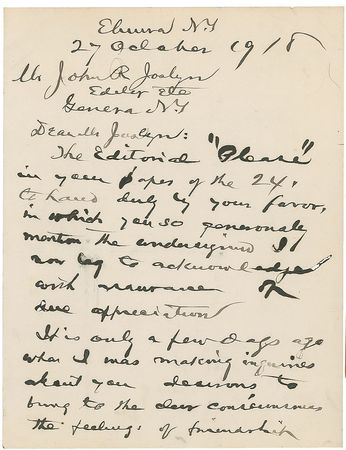 Elmira NY
27 October 1918
Mr John R Joslyn
Editor Etc
Geneva NY
Dear Mr Joslyn:
The Editorial "Please"
in your paper of the 24,
to hand duly by your favor,
in which you so generously
mention the undersigned I
now beg to acknowledge
with assurance of
due appreciation
It is only a few Days ago
what I was making inquiries
about you desirous to
bring to the dear consciousness
the feelings of friendship